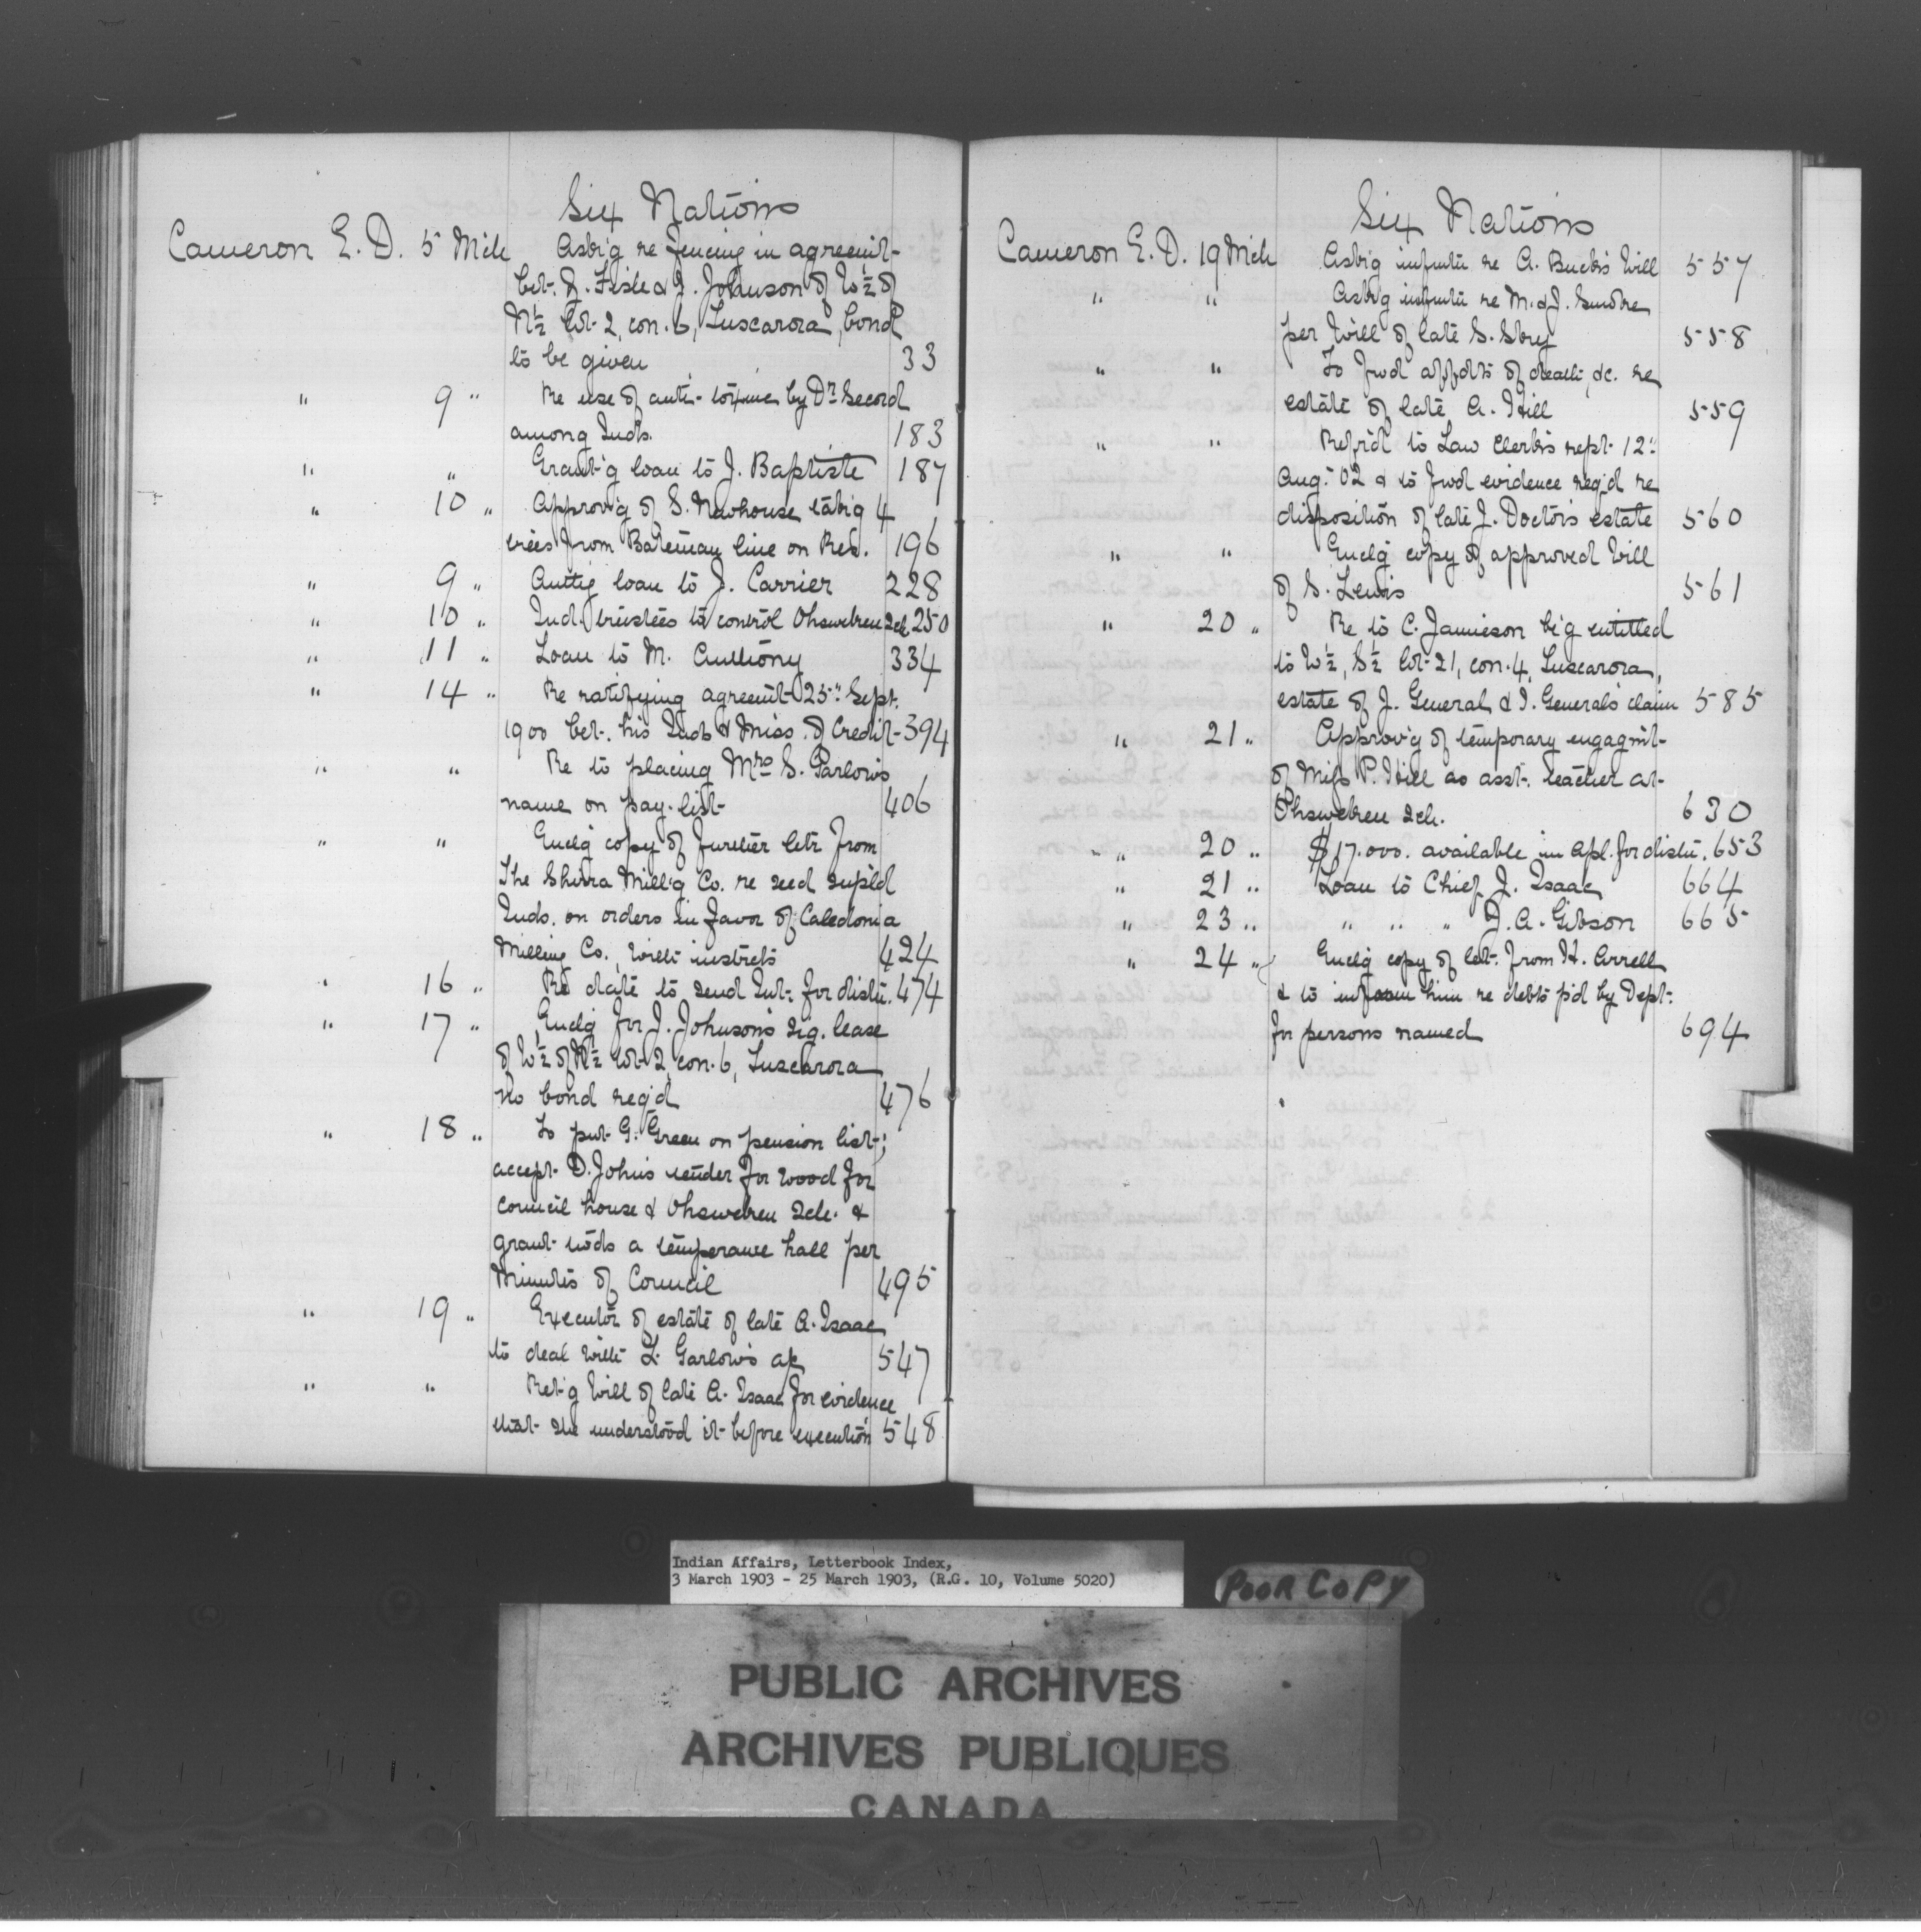 Six Nations
Cameron E. D. 5 Mch Askg re fencing in agreemt-
bet. J. Fish & J. Johnson of W½ of
N½ lot 2, con. 6, Tuscarora, bond
to be given 33
" 9 " Re use of anti-toxine by Dr Secord
among Inds. 183
" " Grant'g loan to J. Baptiste 187
" 10 " Approv'g of S. Newhouse tak'g 4
trees from Bateman line on Res. 196
" 9 " Auttg loan to J. Carrier 228
" 10 " Ind. trustees to control Ohsweken Sch. 250
" 11 " Loan to M. Anthony 334
" 14 " Re ratifying agreemt 25" Sept.
1900 bet. his Inds & Miss. of Credit 394
" " Re to placing Mrs S. Garlow's
name on pay-list 406
" " Enclg copy of further letr from
The Shirra Mill'g Co. re seed supld
Inds. on orders in favor of Caledonia
Milling Co., with instrcts 424
" 16 " Re date to send Int. for distn. 474
" 17 " Enclg for J. Johnson's sig. lease
of W½ of N½ lot 2, con. 6, Tuscarora
no bond req'd 476
" 18 " To put G. Green on pension list;
accept D. John's tender for wood for
council house & Ohsweken Sch. &
grant twds a temperance hall per
Minutes of Council 495
" 19 " Executor of estate of late A. Isaac
to deal with L. Garlow's ap 547
" " Ret'g Will of late A. Isaac for evidence
that she understood it before execution 548
Six Nations
Cameron E. D. 19 Mch Ask'g infmtn re A. Buck's Will 557
" " Ask'g infmtn re M. & J.
per Will of late S. Sky 558
" " To fwd affdts of death, &c. re
estate of late A. Hill 559
" " Ref'd to Law Clerk's rept. 12"
Aug. '02 & to fwd evidence req'd re
disposition of late J. Doctor's estate 560
" " Enclg copy of approved Will
of S. Lewis 561
" 20 " Re to C. Jamieson be'g entitled
to W½, S½ lot 21, con. 4, Tuscarora,
estate of J. General & I. General's claim 585
" 21 " Approv'g of temporary engagmt
of Miss P. Hill as asst. teacher at
Ohsweken Sch. 630
" 20 " $17.000. available in Apl. for distn. 653
" 21 " Loan to Chief J. Isaac 664
" 23 " " " " J. A. Gibson 665
" 24 " Enclg copy of let. from H. Arrell
& to inform him re debts p'd by Dept.
for persons named 694
Indian Affairs, Letterbook Index,
3 March 1903 - 25 March 1903, (R.G. 10, Volume 5020)
POOR COPY
PUBLIC ARCHIVES
ARCHIVES PUBLIQUES
CANADA